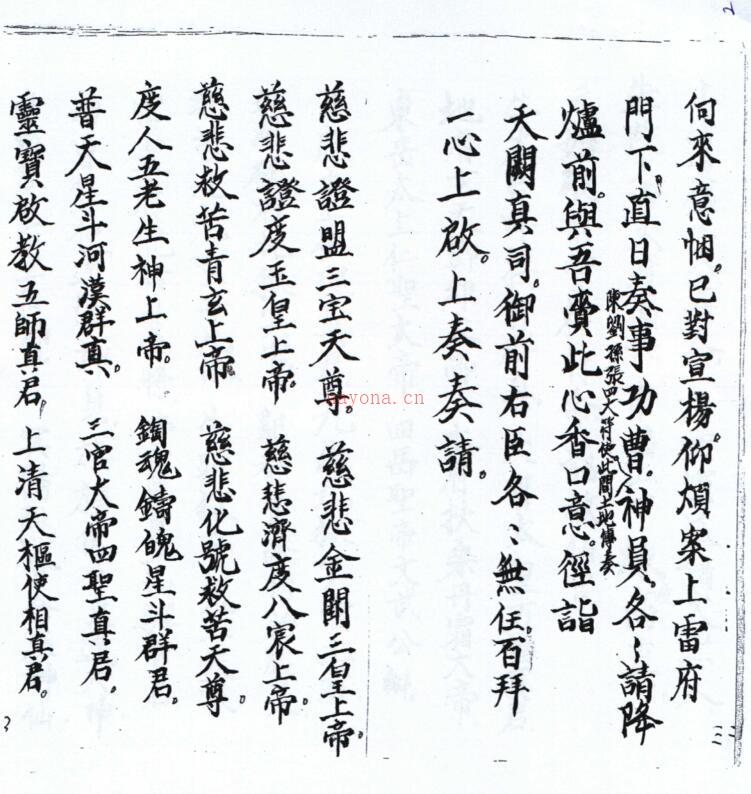 伺來意悃。已對宣楊。仰煩案上雷府
門下。直日奏事功曹。神員。各〻請降
陳劉孫張四大符使此間土地傳奏
爐前。與吾賫此心香口意。徑詣
天闕真司。御前右臣各〻無任。百拜
一心上啟。上奏奏請。
慈悲證盟三宝天尊。 慈悲金闕三皇上帝。
慈悲證度玉皇上帝。 慈悲濟度八宸上帝。
慈悲救苦青玄上帝。 慈悲化號救苦天尊。
度人五老生神上帝。 鍧魂鑄魄星斗群君。
普天星斗河漢群真。 三官大帝四聖真君。
靈寶啟教五師真君。 上清天樞使相真君。
nayona.cn